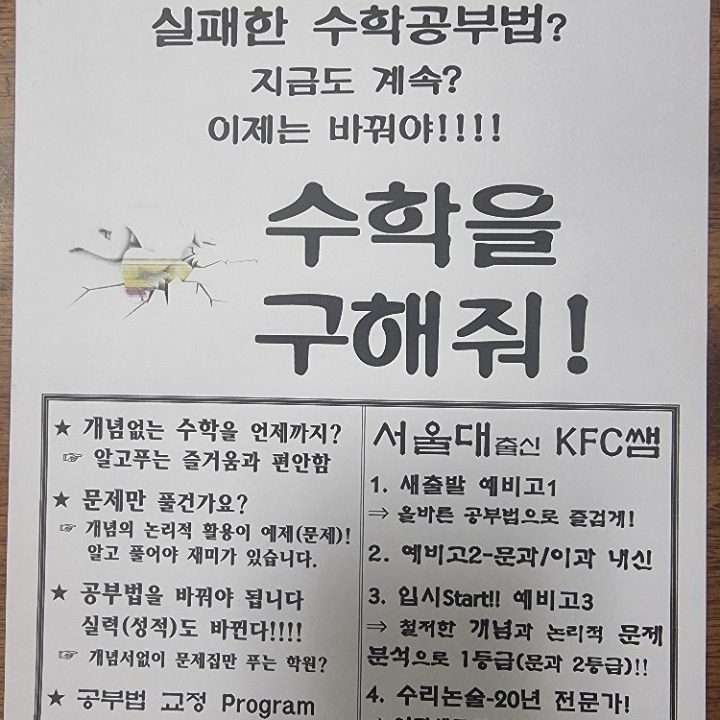 실패한 수학공부법?
지금도 계속?
이제는 바꿔야!!!!
수학을
구해줘!
★ 개념없는 수학을 언제까지?
☞ 알고푸는 즐거움과 편안함
★ 문제만 풀건가요?
☞ 개념의 논리적 활용이 예제(문제)!
알고 풀어야 재미가 있습니다.
★ 공부법을 바꿔야 됩니다
실력(성적)도 바뀐다!!!!
☞ 개념서없이 문제집만 푸는 학원?
★ 공부법 교정 Program
서울대출신 KFC쌤
1. 새출발 예비고1
⇒ 올바른 공부법으로 즐겁게!
2. 예비고2-문과/이과 내신
3. 입시Start!! 예비고3
⇒ 철저한 개념과 논리적 문제
분석으로 1등급(문과 2등급)!!
4. 수리논술-20년 전문가!